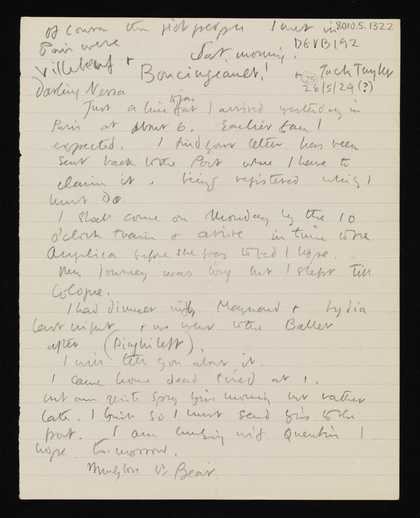 of course the first people I met in
Paris were
Villeboeuf +
Boucingeault!
8010.5.1322
DGVB192
+ Jack Taylor
26/5/24 (?)
Sat. morning.
Darling Nessa
Just a line to say I arrived yesterday in
Paris at about 6. Earlier than I
expected. I find your letter has been
sent back to the Post where I have to
claim it, being registered which I
must do
I shall come on Monday by the 10
o'clock train + arrive in time to see
Angelica before she goes to bed I hope.
My journey was long but I slept till
Cologne.
I had dinner with Maynard + Lydia
last night + we went to the Ballet
after (Diaghileff).
I will tell you about it.
I came home dead tired at 1.
but am quite spry this morning but rather
late. I think so I must send this to the
post. I am lunching with Quentin I
hope tomorrow.
Bear